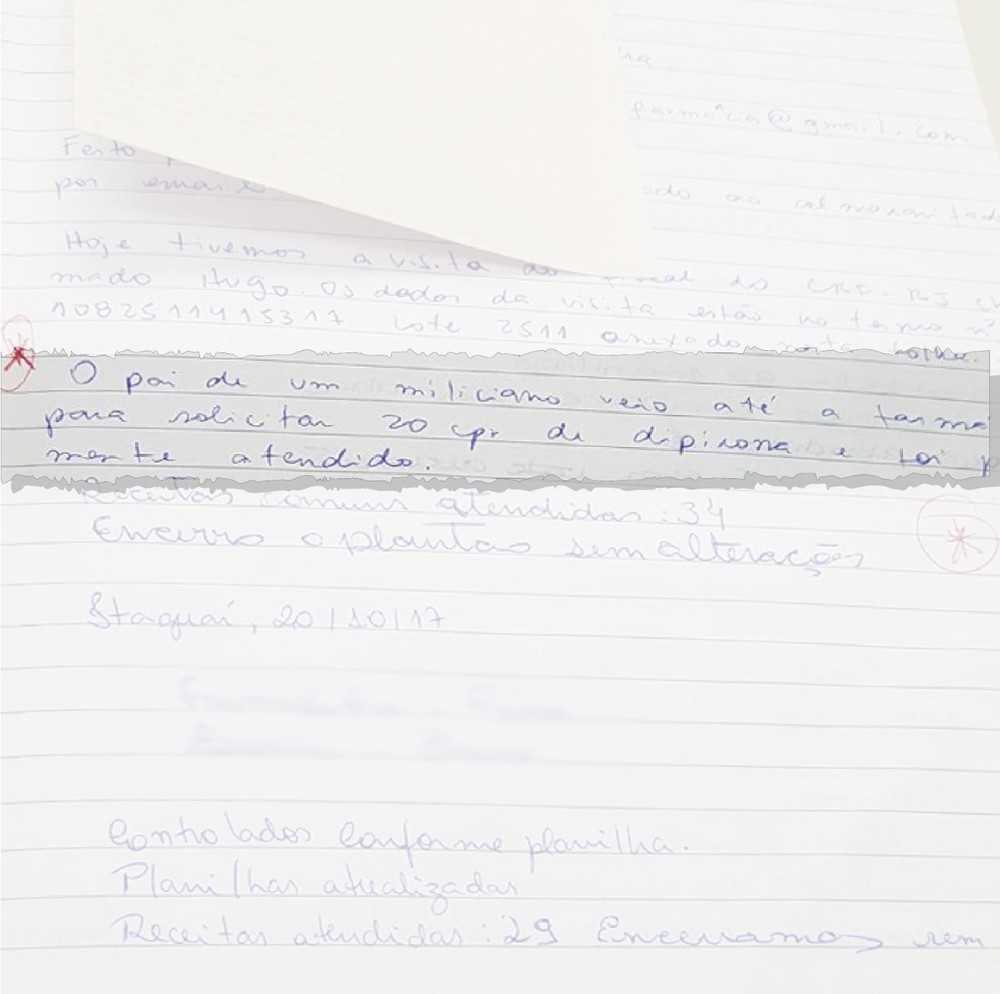 farmácia@gmail.com
Feito
por email
Hoje tivemos a visita do fiscal do CRF-RJ
mado Hugo. Os dados da visita estão no termo nº
10825111415317 lote 2511 anexado nesta folha.
O pai de um miliciano veio até a farmá
para solicitar 20 cpr de dipirona e foi p
mente atendido.
Receitas comuns atendidas: 34
Encerro o plantão sem alterações
Itaguaí, 20/10/17
Controlados conforme planilha.
Planilhas atualizadas
Receitas atendidas: 29 Encerramos sem